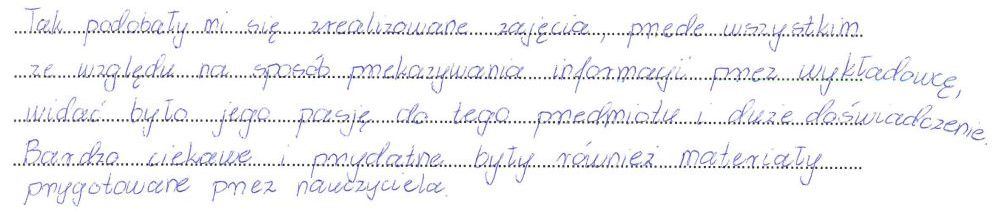 Tak podobały mi się zrealizowane zajęcia, przede wszystkim
ze względu na sposób przekazywania informacji przez wykładowcę,
widać było jego pasję do tego przedmiotu i duże doświadczenie.
Bardzo ciekawe i przydatne były również materiały
przygotowane przez nauczyciela.